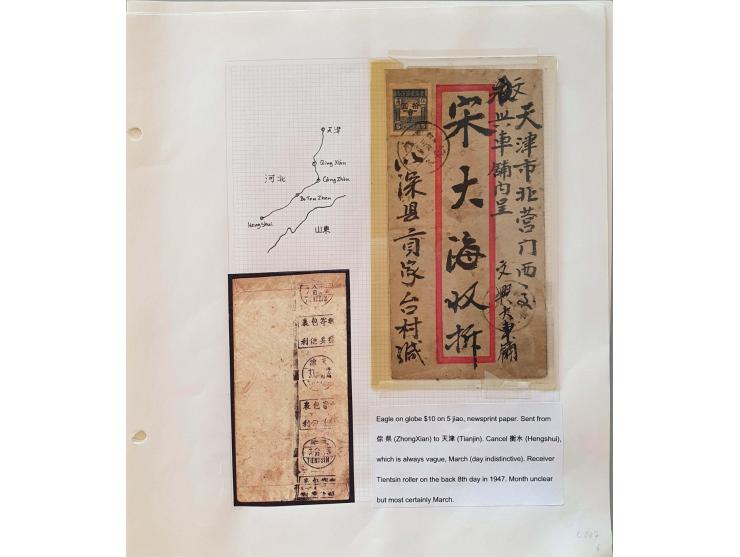 天津
Qing Xian
河北
Cang Zhou
Bo Tou Zhen
Hengshui
山東
天津市北营门西
興車舖内呈
文興大車廠
宋大海收拆
深县貢家台村缄
TIENTSIN
裹包寄
利
裹包寄
利
TIENTSIN
Eagle on globe $10 on 5 jiao, newsprint paper. Sent from
倧県 (ZhongXian) to 天津 (Tianjin). Cancel 衡水 (Hengshui),
which is always vague, March (day indistinctive). Receiver
Tientsin roller on the back 8th day in 1947. Month unclear
but most certainly March.